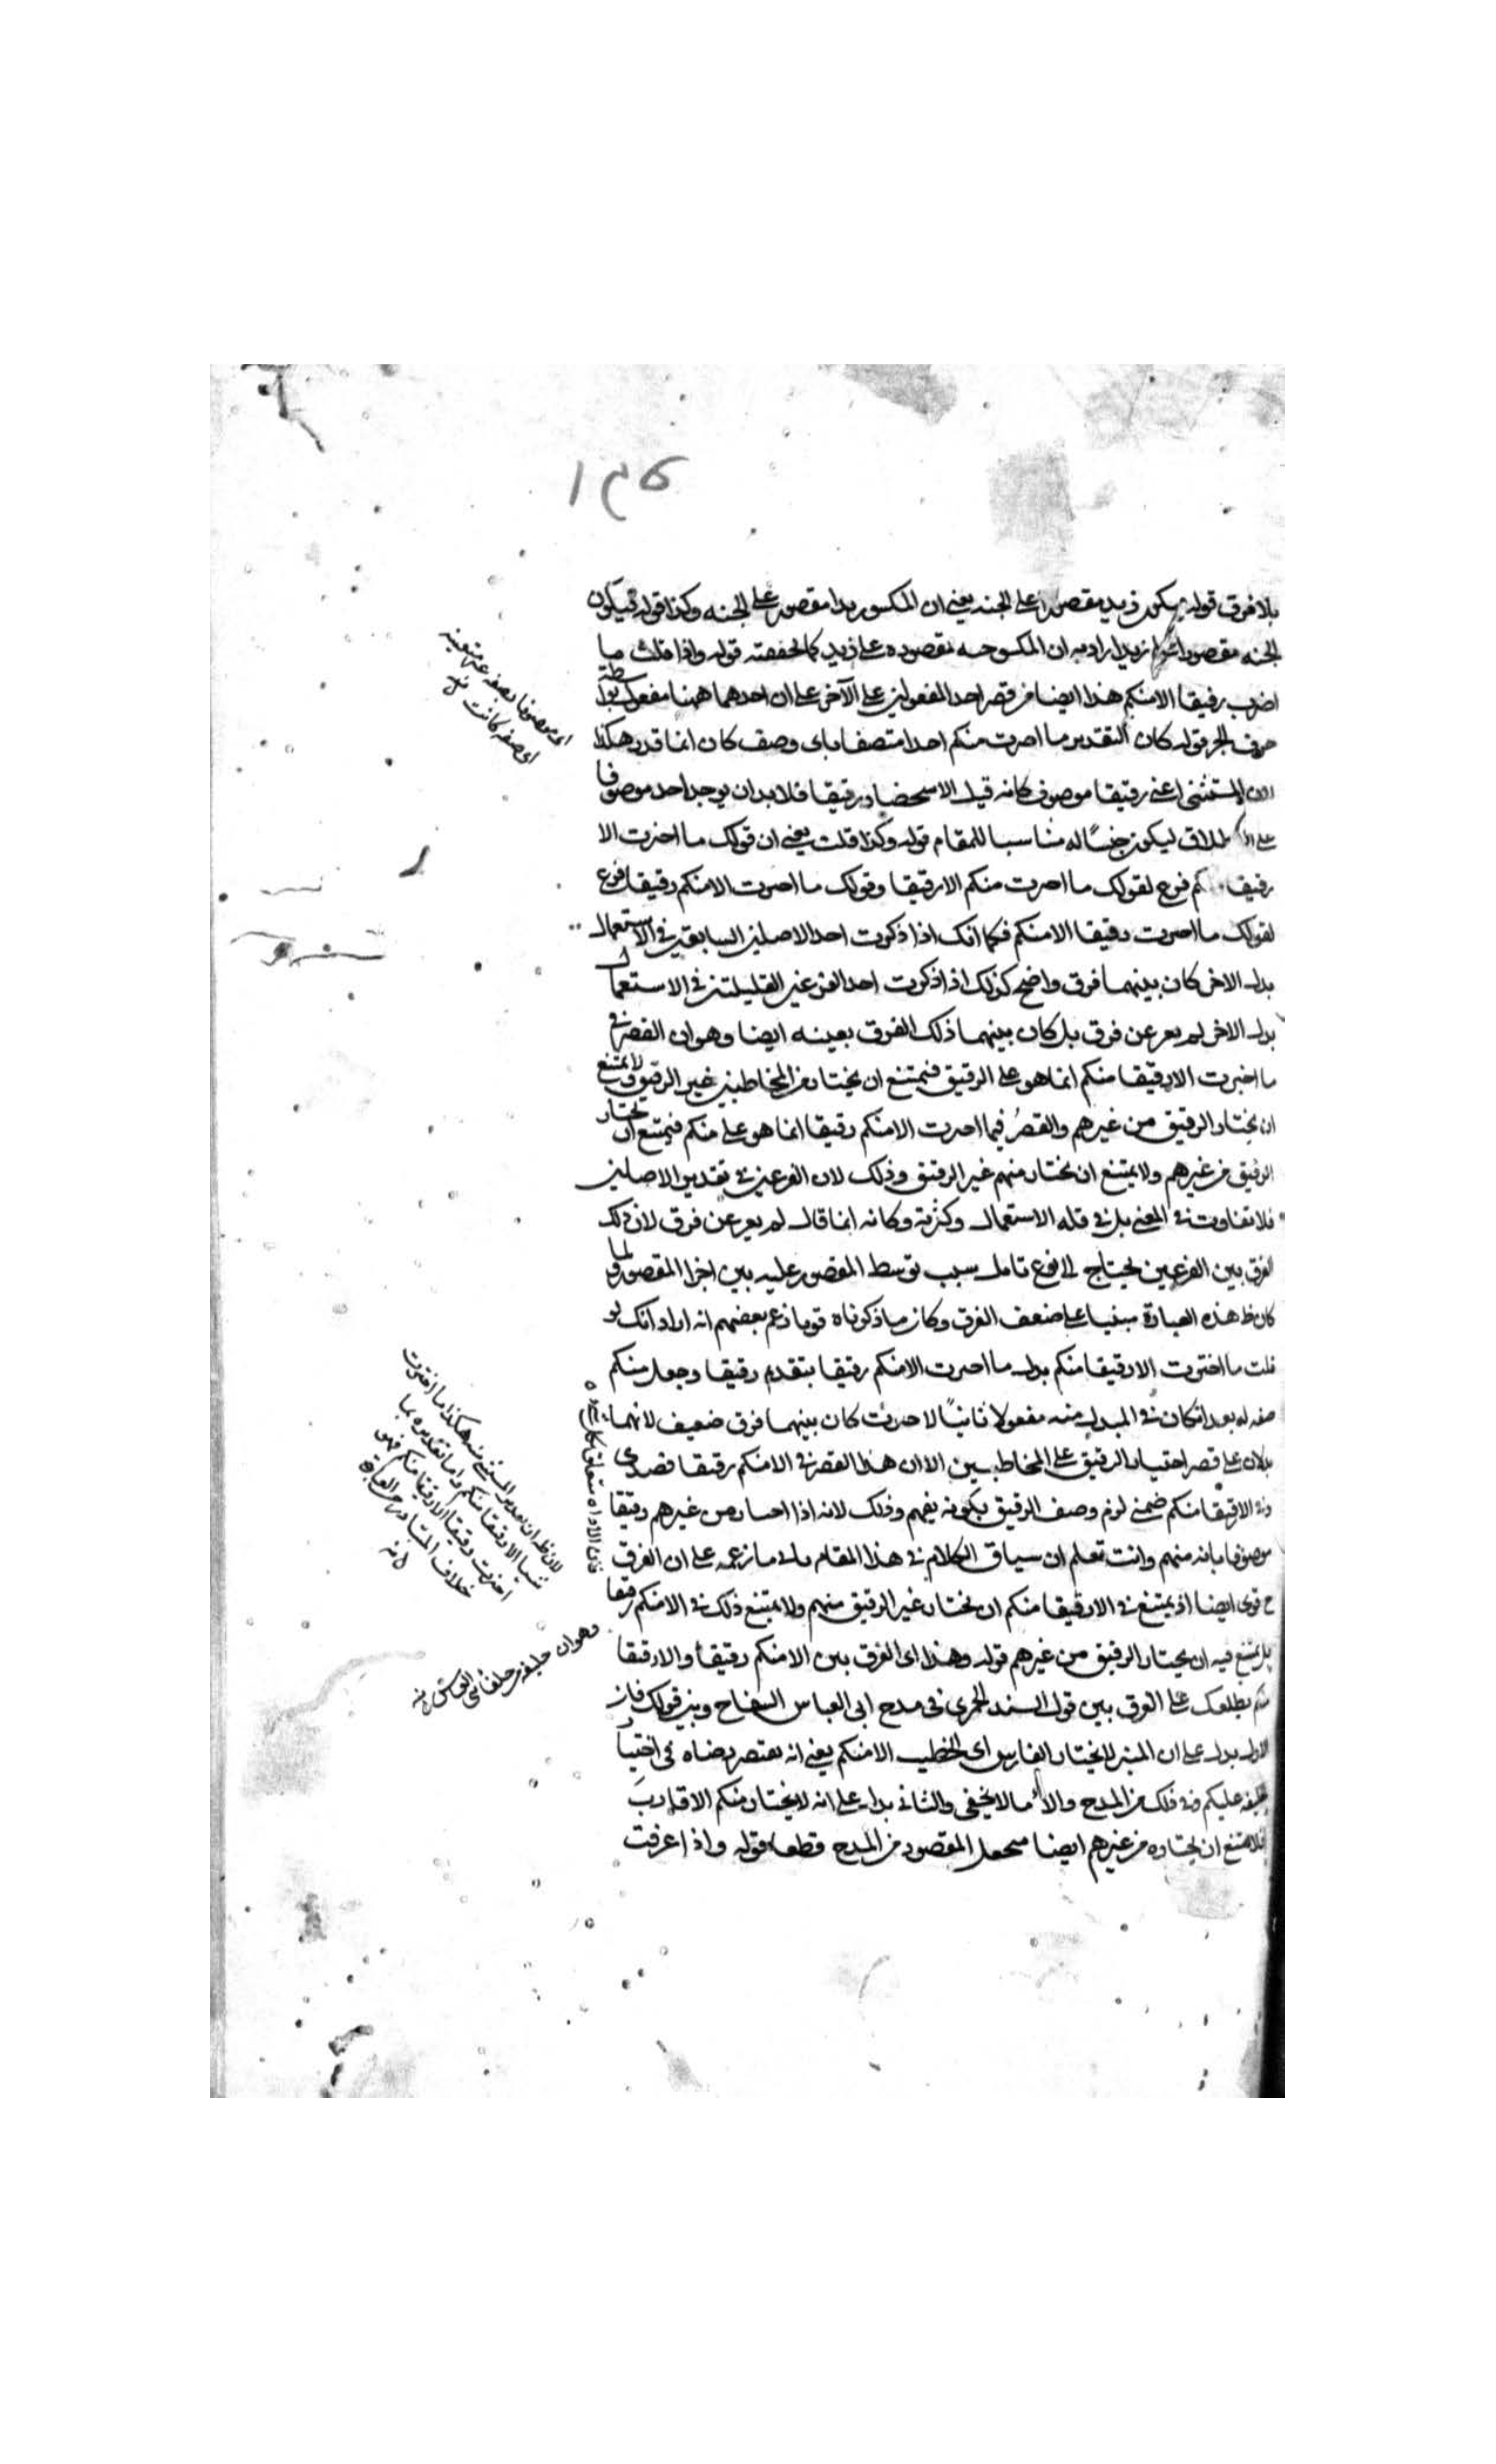 ١٣٥
بلا فرق قوله يكون زيد مقصورا على الجنة يعني ان المكسو زيدا مقصور على الجبه وكذا قوله فيكون
الجبه مقصودا زيدا اراد به ان المكسو جبه مقصوده على زيد كما لحقته قوله واذا قلت ما
اضرب رفيقا الا منكم هذا ايضا من قصر احد المفعولين على الآخر على ان احدهما ههنا مفعول بواسطة
حرف الجر قوله كان التقدير ما اخترت منكم احدا متصفا باى وصف كان انما قدر هكذا
لان المستثنى اعنى رفيقا موصوف كانه قيل الا شخصا رفيقا فلا بد ان يوجد احد موصوفا
على الاطلاق ليكون جنسًا له مناسبا للمقام قوله وكذا قلت يعني ان قولك ما اخترت الا
رفيقا منكم فرع لقولك ما اخترت منكم الا رفيقا وقولك ما اخترت الا منكم رفيقا فرع
لقولك ما اخترت رفيقا الا منكم فكما انك اذا ذكرت احد الاصلين السابقين في الاستعمال
بدل الاخر كان بينهما فرق واضح كذلك اذا ذكرت احد الفرعين القليلتين في الاستعمال
بدل الاخر لم يعر عن فرق بل كان بينهما ذلك الفرق بعينه ايضا وهو ان القصر في
ما اخترت الا رفيقا منكم انما هو على الرفيق فيمتنع ان يختار من المخاطبين غير الرفيق ولا يمتنع
ان يختار الرفيق من غيرهم والقصر فيما اخترت الا منكم رفيقا انما هو على منكم فيمتنع ان يختار
الرفيق من غيرهم ولا يمتنع ان يختار منهم غير الرفيق وذلك لان الفرعين في تقدير الاصلين
فلا تفاوت في المعنى بل في قلة الاستعمال وكثرته وكانه انما قال لم يعر عن فرق لان ذلك
الفرق بين الفرعين يحتاج الى نوع تامل بسبب توسط المقصور عليه بين اجزا المقصور ولما
كان ظ هذه العبارة مبنيا على ضعف الفرق وكان ما ذكرناه قويا زعم بعضهم انه اراد انك لو
قلت ما اخترت الا رفيقا منكم بدل ما اخترت الا منكم رفيقا بتقديم رفيقا وجعل منكم
صفه له بعد ان كان في المبدل منه مفعولا ثانيًا لاخترت كان بينهما فرق ضعيف لانهما
يدلان على قصر اختيار الرفيق على المخاطبين الا ان هذا القصر في الا منكم رفيقا قصدى
وفي الا رفيقا منكم ضمنى لزم وصف الرفيق بكونه فيهم وذلك لانه اذا اختار من غيرهم رفيقا
موصوفا بانه منهم وانت تعلم ان سياق الكلام في هذا المقام ما زعمه على ان الفرق
ح قوى ايضا اذ يمتنع في الا رفيقا منكم ان يختار غير الرفيق منهم ولا يمتنع ذلك في الا منكم رفيقا
بل يمتنع فيه ان يختار الرفيق من غيرهم قوله وهذا اى الفرق بين الا منكم رفيقا والا رفيقا
منكم يطلعك على الفرق بين قول السيد الحميرى في مدح ابى العباس السفاح وبين قولك فان
الاول يدل على ان المنبر لا يختار الفارس اى الخطيب الا منكم يعني انه يقتصر رضاه في اختيار
خليفه عليكم وفي ذلك من المدح ما لا يخفى والثاني يدل على انه لا يختار منكم الا فارسا
فلا يمتنع ان يختاره من غيرهم ايضا المقصود من المدح قطعا قوله واذا عرفت
اى موصوفا بصفه غير متعينه
اى صفه كانت منه
فان الاداه متعلق بكل
لان ظ ان تقدير المستثنى منه هكذا ما اخترت
شيا الا رفيقا منكم واما تقديره بما
اخترت رفيقا الا رفيقا منكم فهو
خلاف المتبادر من العبارة
منه
وهو ان خليفه من خلفا